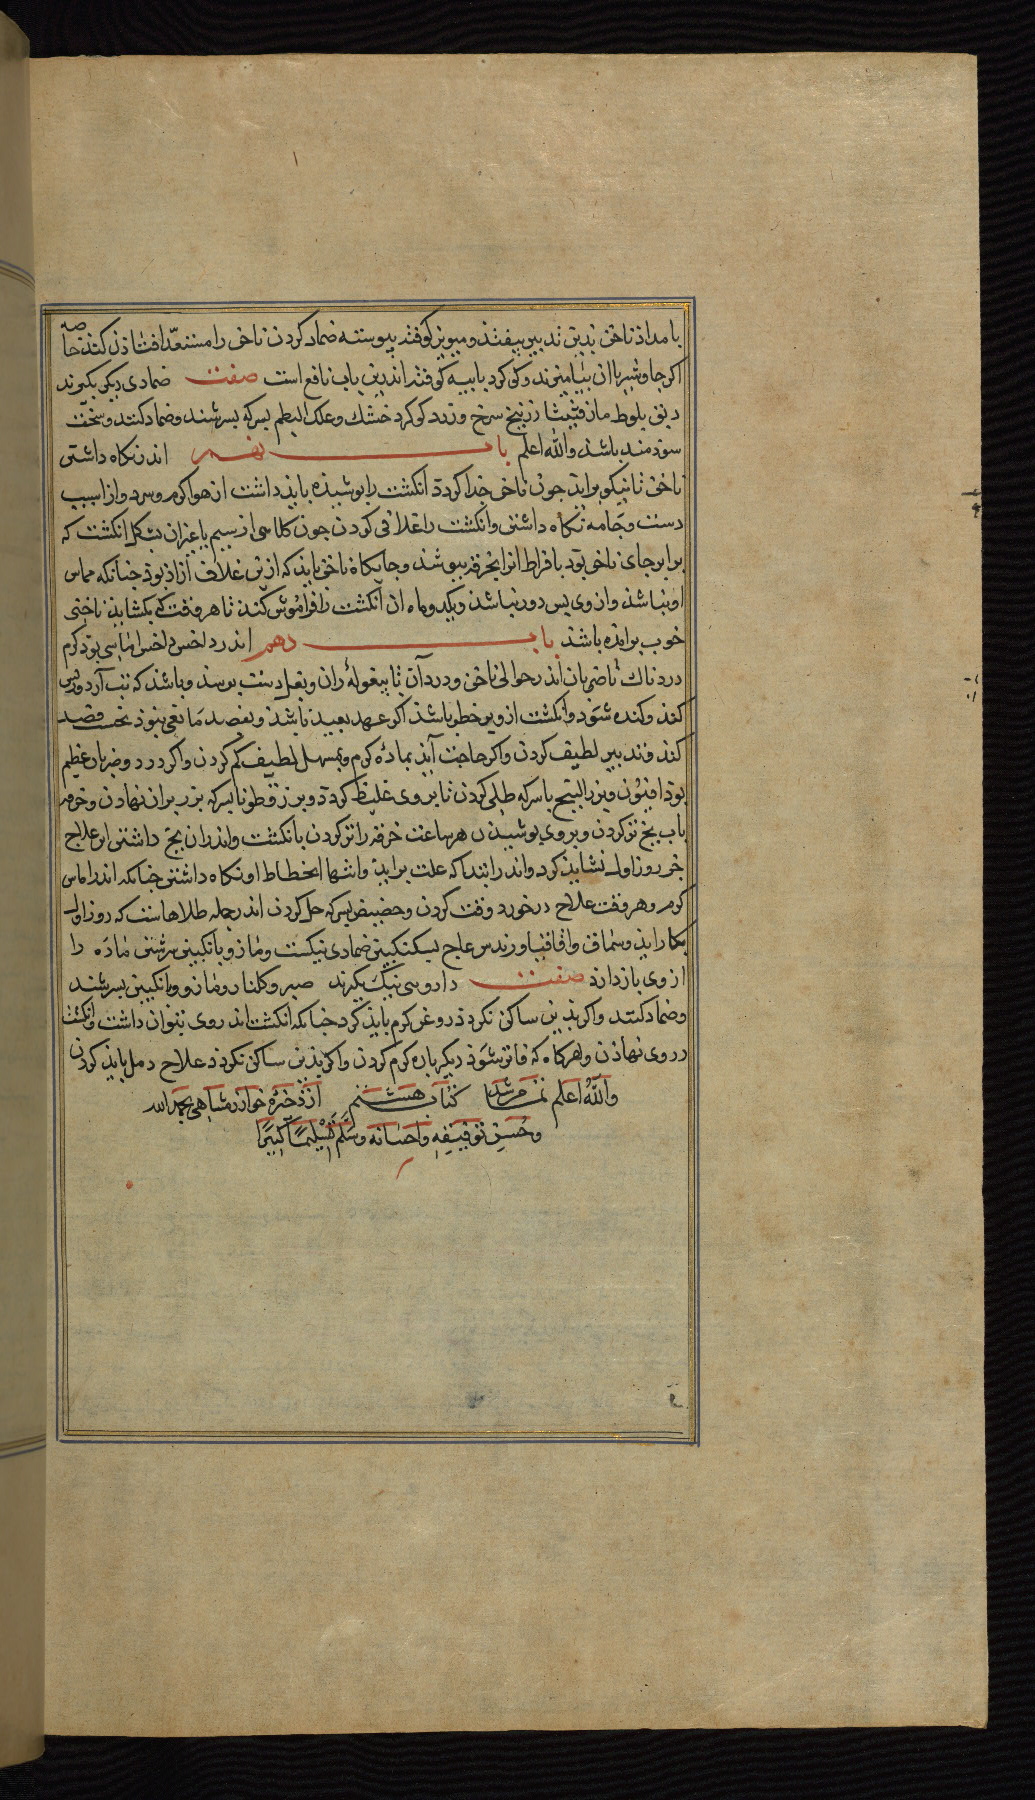 بامداد ناخن بدین تدبیر بیفتد و میویز کوفته پیوسته ضماد کردن ناخن را مستعد افتاذن کند خاصه
اکر جاوشیر باان بیامیزند وکوکرد با پیه کوفته اندرین باب نافع است صفت ضمادی دیکر بکیرند
دبق بلوط مازقشیثا زرنیخ سرخ و زرد کوکرد خشک وعلک البطم بسرکه بسرشند وضماد کنند وسخت
سوذمند باشد والله اعلم باب نهم اندر نکاه داشتن
ناخن تا نیکو براید جون ناخن جدا کردد انکشت را بوشیذه باید داشت از هوا کرم وسرد واز اسیب
دست وجامه نکاه داشتن وانکشت را غلافی کردن جون کلاسی از سیم یا غیر ان بشکل انکشت که
برابر جای ناخن بوذ با قراط انرا بخرقه ببوشند وجایکاه ناخن بایذ که ازین غلاف آزاذ بوذ جنانکه مماس
او نباشذ واز وی بس دور نباشذ ویک دو ماه ان انکشت را فراموش کند تا هر وقت که بکشایذ ناخنی
خوب برامذه باشذ باب دهم اندر داخس داخس اماسی بوذ کرم
دردناک با ضربان اندر حوالی ناخن ودرد آن تا بیغوله ران وبغل دست برسذ وباشذ که تب آرد وریش
کند وکنده شوذ وانکشت ازو بر خطر باشذ اکر عهد بعید باشذ وبفصد مانعی نبوذ نخست فصد
کنند وتدبیر لطیف کردن واکر حاجت آیذ بماده کرم وبمسهل لطیف کم کردن واکر درد وضربان عظیم
بوذ افیون وبزر البنج با سرکه طلی کردن تا بر وی غلیظ کردد وبزرقطونا بسرکه تر بر ان نهاذن وخرقه
باب یخ تر کردن وبر وی بوشیذن هر ساعت خرقه را تر کردن با نکشت واندران یخ داشتن این علاج
جز روز اول نشایذ کرد واندر ابتدا که علت برایذ وانتها انحطاط او نکاه داشتن جنانکه اندر اماس
کرم وهر وقت علاج درخورد وقت کردن وحضض بسرکه حل کردن اندر جمله طلاهاست که روز اول
بکار ایذ وسماق واقاقیا ورندس عاج بسکنکبین ضمادی نیکست ومازو بانکبین سرشتن ماده را
از وی بازدارذ صفت داروسی نیک بکیرند صبر وکلنار ومازو وبانکبین بسرشند
وضماد کنند واکر بذین ساکن نکردذ روغن کرم بایذ کرد جنانکه انکشت اندر وی بتوان داشت وانکشت
در وی نهاذن وهرکاه که فاتر شوذ دیکر باره کرم کردن واکر بذین ساکن نکردذ علاج دمل بایذ کردن
والله اعلم تمام شد کتاب هشتم از ذخیره خوارزمشاهی بحمد الله
وحسن توفیقه واحسانه وسلم تسلیما کبیرا